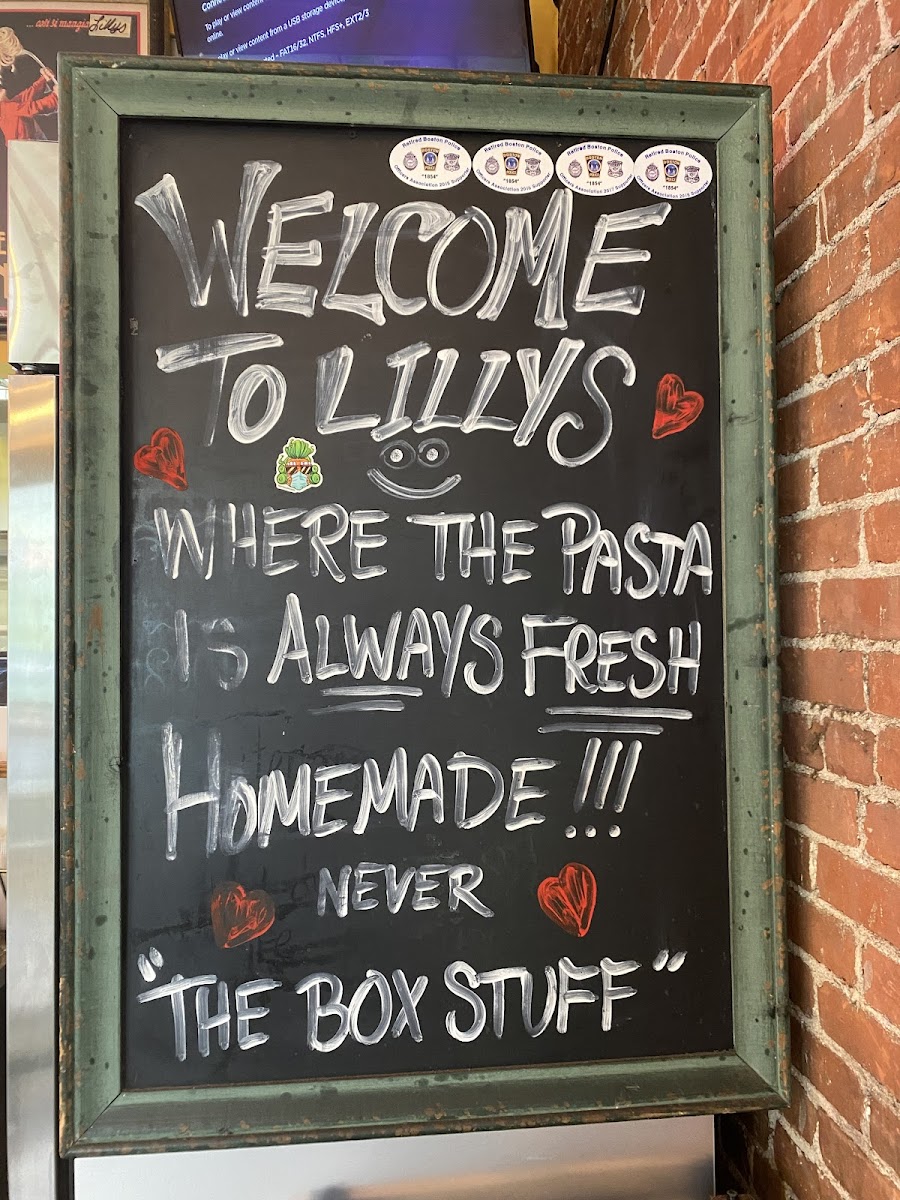 ... così si mangia
Lillys
To play or view content from a USB storage device
online.
play or view content from a USB storage devices
FAT16/32, NTFS, HFS+, EXT2/3
Retired Boston Police
"1854"
Officers Association 2015 Supporter
Retired Boston Police
"1854"
Officers Association 2016 Supporter
Retired Boston Police
"1854"
Officers Association 2017 Supporter
Retired Boston Police
"1854"
Officers Association Supporter
WELCOME
TO LILLYS
WHERE THE PASTA
IS ALWAYS FRESH
HOMEMADE !!!
NEVER
"THE BOX STUFF"